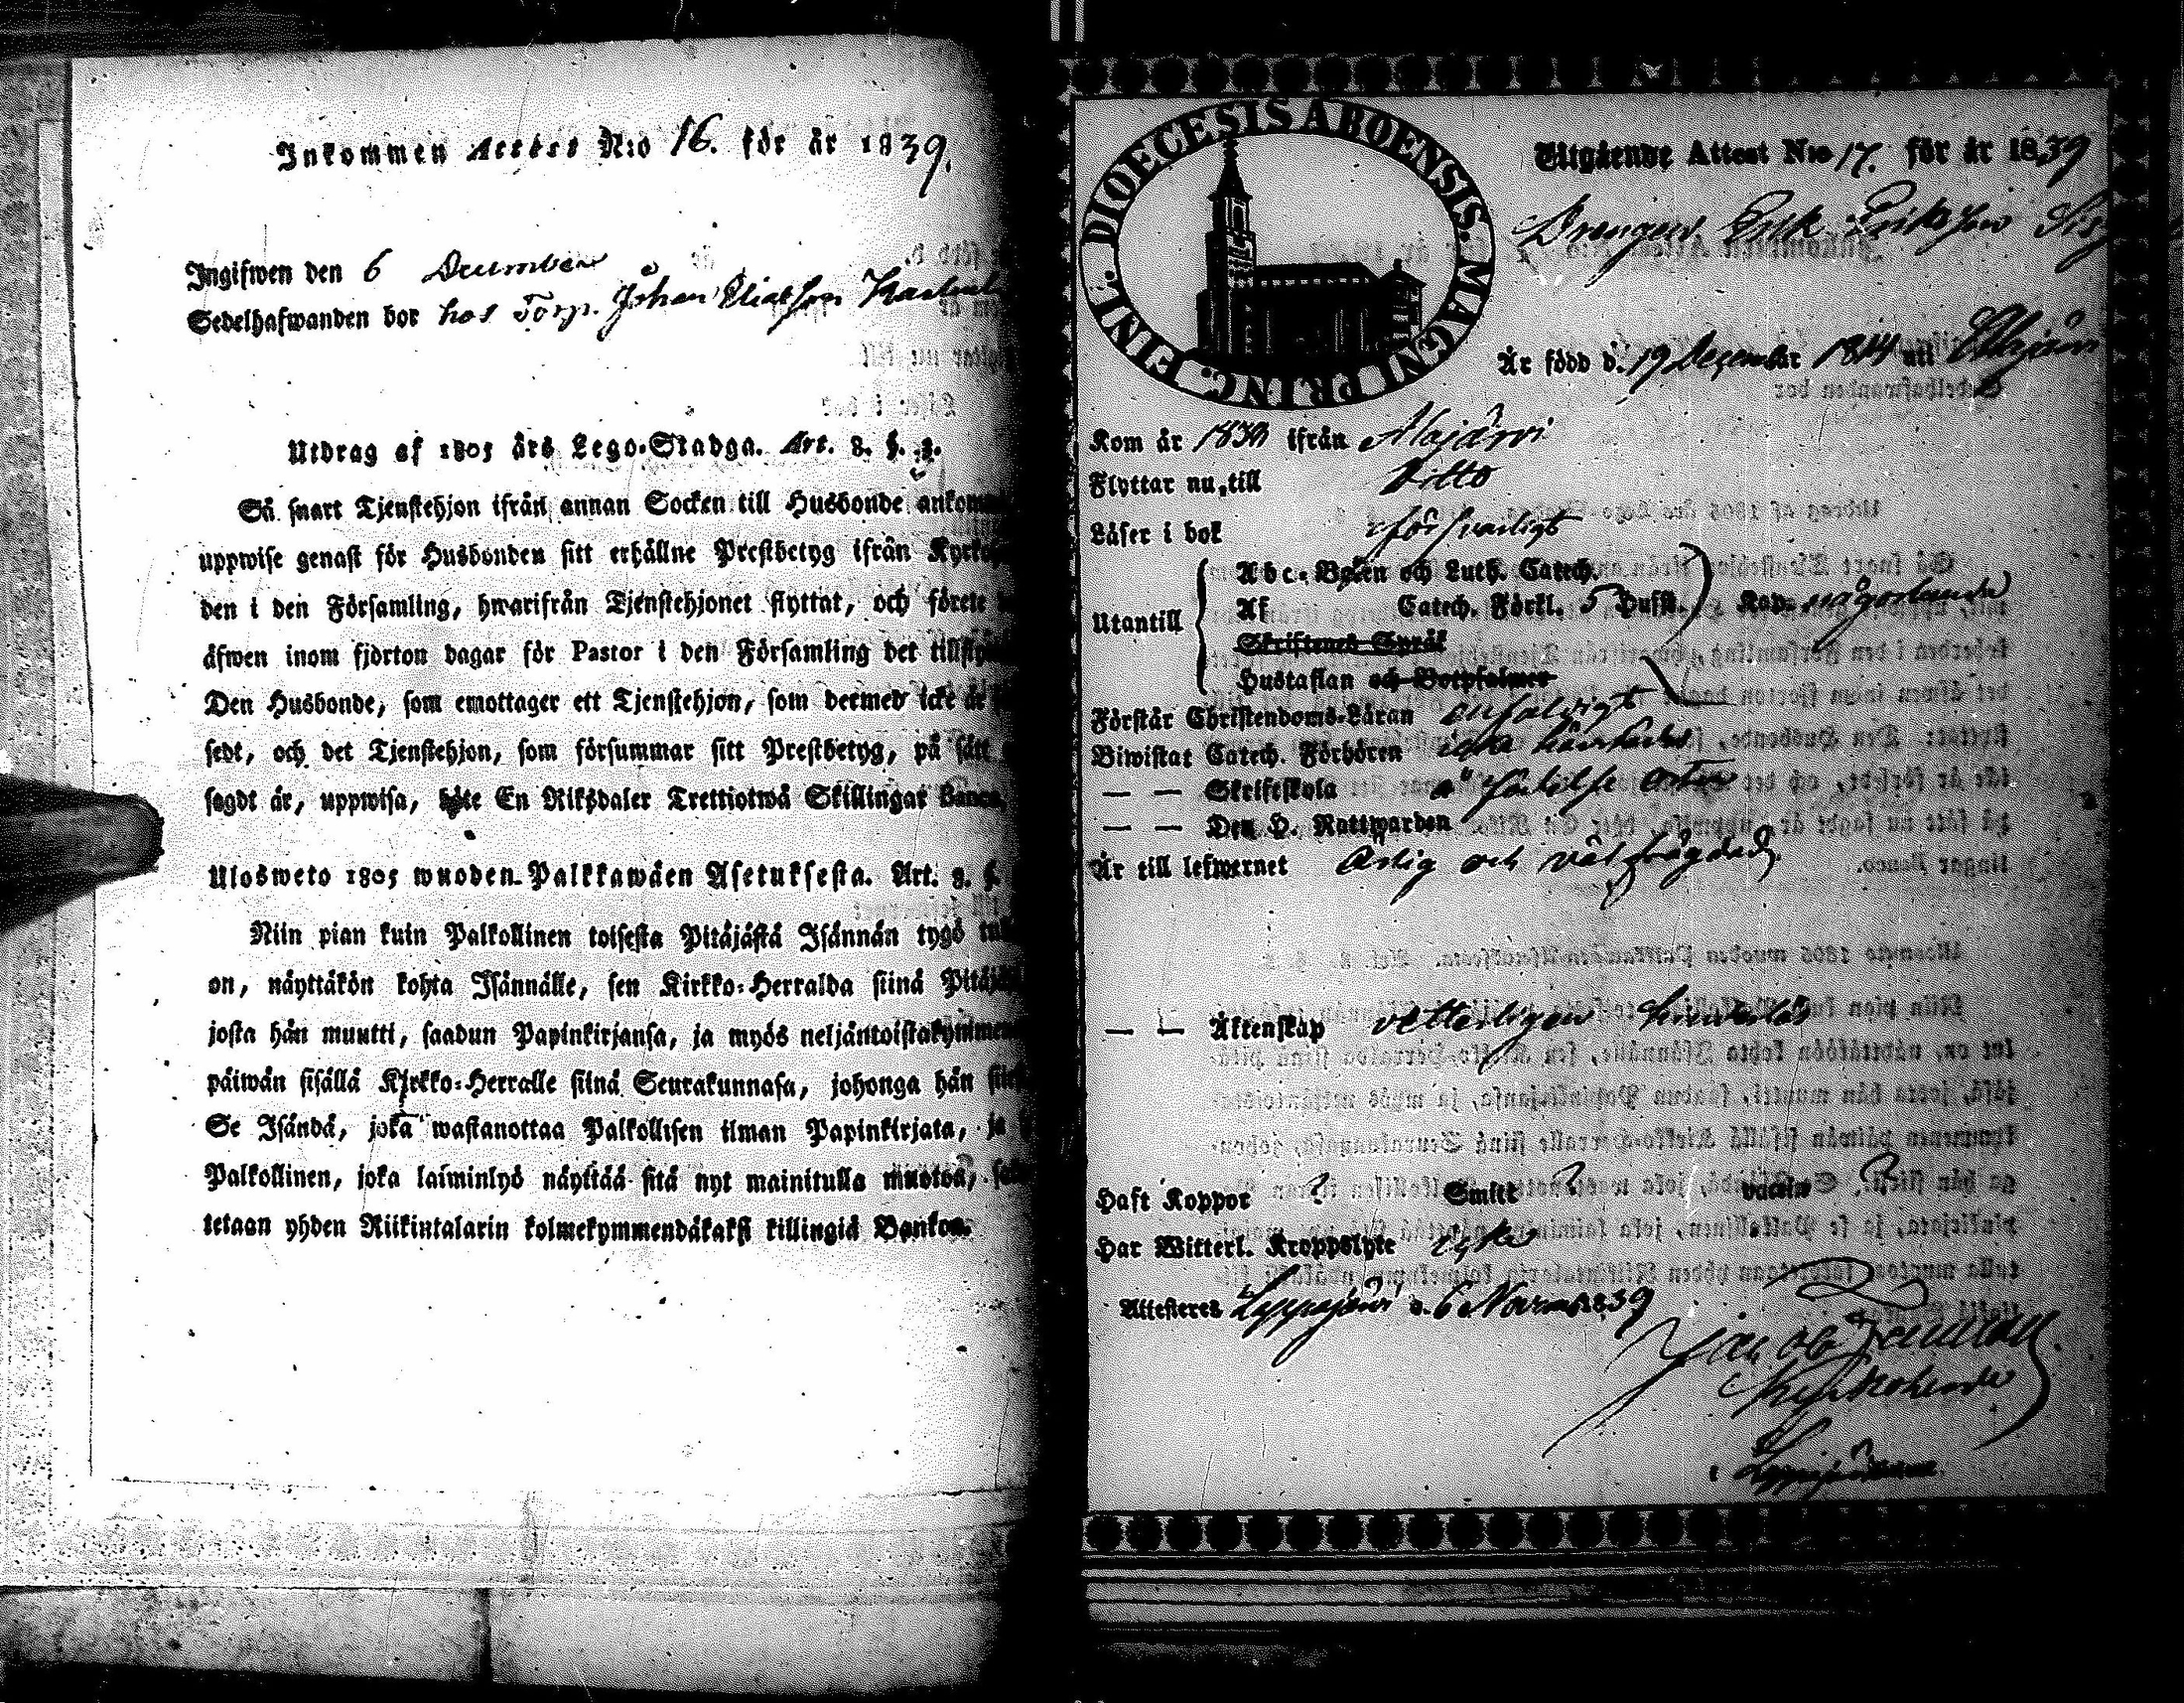 Inkommen Attest N:o 16. för år 1839.
Ingifwen den 6 December
Sedelhafwanden bor hos Torp. Johan Eliasson
Utdrag af 1805 års Lego-Stadga. Art. 8. §. 3.
Så snart Tjenstehjon ifrån annan Socken till Husbonde
uppwise genast för Husbonden sitt erhållne Prestbetyg ifrån
den i den Församling, hwarifrån Tjenstehjonet flyttat, och förete
äfwen inom fjorton dagar för Pastor i den Församling det
Den Husbonde, som emottager ett Tjenstehjon, som dermed icke är
sedt, och det Tjenstehjon, som försummar sitt Prestbetyg, på sätt
sagdt är, uppwisa, böte En Riksdaler Trettiotwå Skillingar Banco.
Ulosweto 1805 wuoden Palkkawäen Asetuksesta. Art. 8. §.
Niin pian kuin Palkollinen toisesta Pitäjästä Isännän tygö
on, näyttäkön kohta Isännälle, sen Kirkko-Herralda siinä
josta hän muutti, saadun Papinkirjansa, ja myös
päiwän sisällä Kirkko-Herralle siinä Seurakunnasa, johonga hän
Se Isändä, joka wastanottaa Palkollisen ilman Papinkirjata, ja
Palkollinen, joka laiminlyö näyttää sitä nyt mainitulla muotoa,
tetaan yhden Riikintalarin kolmekymmendäkaksi killingiä Bankoa.
DIOECESIS ABOENSIS. MAGNI PRINC. FINL.
Utgående Attest N:o 17. för år 1839
Drengen Erik Eriksson
Är född d. 19 December 1814 uti
Kom år ifrån Alajärvi
Flyttar nu till Ditto
Läser i bok försvarligt
Utantill
Abc-Boken och Luth. Catech.
Af Catech. Förkl. 5 Hufst. Kan någorlunda
Skriftenes Språk
Hustaflan och Botpsalmer
Förstår Christendoms-Läran enfaldigt
Biwistat Catech. Förhören
— — Skriftskola
— — Den H. Nattwarden
Är till lefwernet Ärlig och väl frägdad
— — Äktenskap vetterligen
Haft Koppor ? Smitt ? vaccin ?
Har Witterl. Kroppslyte
Attesteras Lappajärvi d. 6 Novemb 1839
Jacob
Kyrkoherde
i